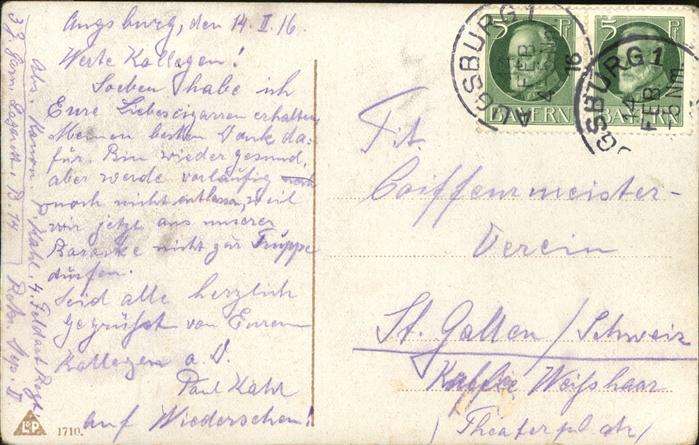 Augsburg, den 14. II. 16.
Werte Kollegen!
Soeben habe ich
Eure Liebescigarren erhalten
Meinen besten Dank da-
für. Bin wieder gesund,
aber werde vorläufig
noch nicht entlassen, weil
wir jetzt aus unserer
Baracke nicht zur Truppe
dürfen.
Seid alle herzlich
gegrüßt von Eurem
Kollegen a. D.
Paul Kahl
auf Wiedersehen!
Abs. Kanon. P. Kahl. 4. Feldart. Regt.
B 14
L&P 1710.
AUGSBURG 1
14 FEB
16
5 Pf
BAYERN
5 Pf
BAYERN
AUGSBURG 1
14 FEB
5-6 Nm
Tit.
Coiffeurmeister-
Verein
St. Gallen / Schweiz
Kaffee Weißhaar
(Theaterplatz)